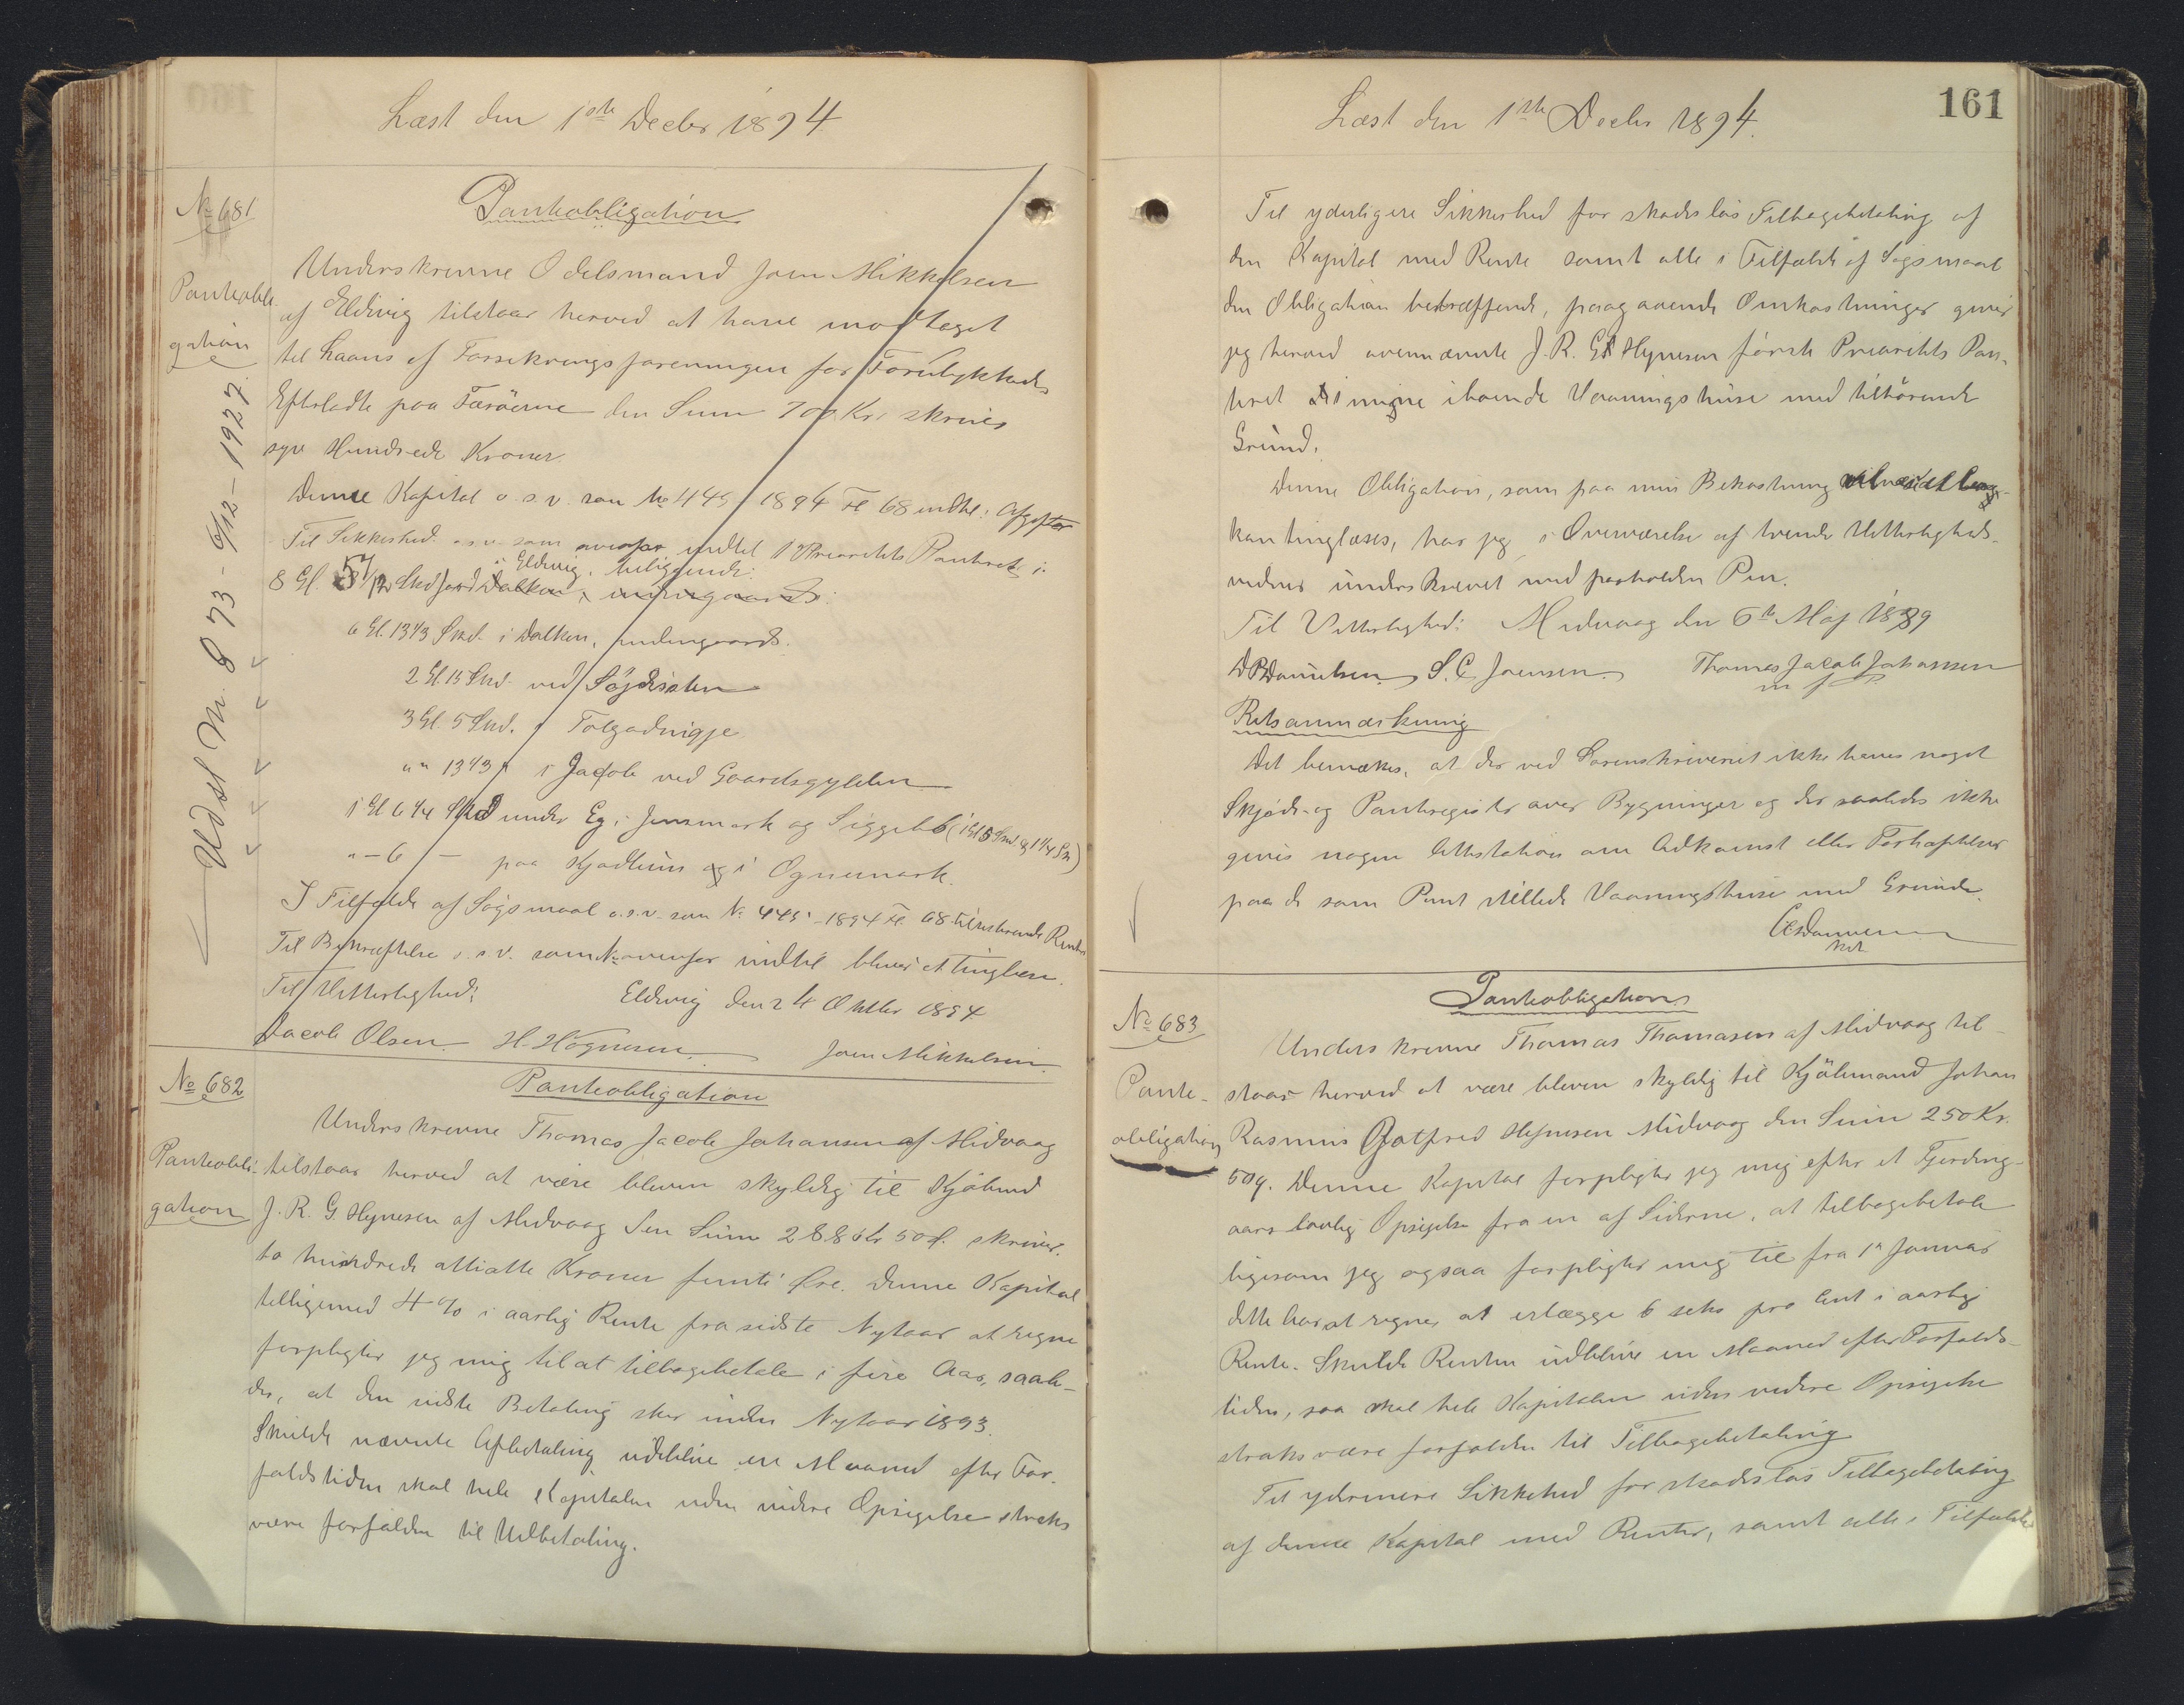 Læst den 1ste Decbr 1894
No 681
Panteobli-
gation
Udsl. N. 873 - 6/12 - 1927
Panteobligation
Underskrevne Odelsmand Joen Mikkelsen
af Eldevig tilstaar herved at have modtaget
til Laans af Forsikringsforeningen for Forulykkedes
Efterladte paa Færöerne den Sum 700 Kr. skriver
syv Hundrede Kroner.
Denne Kapital o.s.v. som No 445 1894 Fl 68 indtil: Afgifter
Til Sikkerhed o.s.v. som ovenfor indtil 1ste Prioritets Panteret i
i Eldevig, beliggende:
8 Gl. 5 7/12 Skd Jord
6 Gl. 13 1/3 Skd. i Dalken, indengaards.
2 Gl. 15 Skd. ved
3 Gl. 5 Skd. i
" " 13 1/3 " i Jacobs ved Gaardsgylden
1 Gl 6 1/4 Skd under Eg, i Jensmark og (1 Gl 5 Skd og 1 1/4 Sk)
" - 6 - paa og i Ognemark.
I Tilfælde af Søgsmaal o.s.v. som No 445 - 1894 Fl. 68 tilsvarende Renter
Til Bekræftelse o.s.v. som ovenfor indtil bliver at tinglæse.
Til Vitterlighed: Eldevig den 24 Oktbr 1894
Jacob Olsen. H. Högnesen. Joen Mikkelsen.
No 682
Panteobli-
gation
Panteobligation
Underskrevne Thomas Jacob Johansen af Midvaag
tilstaar herved at være bleven skyldig til Kjøbmd
J. R. G. Hejnesen af Midvaag den Sum 288 Kr 50 Ø. skriver
to hundrede ottiotte Kroner femti Øre. Denne Kapital
tilligemed 4 % i aarlig Rente fra sidste Nytaar at regne
forpligter jeg mig til at tilbagebetale i fire Aar, saale-
des, at den sidste Betaling sker inden Nytaar 1893.
Skulde nævnte Afbetaling udeblive en Maaned efter For-
faldstiden skal hele Kapitalen uden videre Opsigelse straks
være forfalden til Udbetaling.
161
Læst den 1ste Decbr 1894.
Til yderligere Sikkerhed for skadesløs Tilbagebetaling af
den Kapital med Rente samt alle i Tilfælde af Søgsmaal
den Obligation betræffende, paagaaende Omkostninger giver
jeg herved ovennævnte J. R. G. Hejnesen første Prioritets Pan-
teret i mine iboende Vaaningshuse med tilhørende
Grund.
Denne Obligation, som paa min Bekostning
kan tinglæses, har jeg i Overværelse af tvende Vitterligheds-
vidner underskrevet med paaholden Pen.
Til Vitterlighed: Midvaag den 6te Maj 1889
D B Danielsen. S. C. Joensen. Thomas Jacob Johansen
m f P.
Retsanmærkning
Det bemærkes, at der ved Sorenskriveriet ikke haves noget
Skjøde- og Panteregister over Bygninger og der saaledes ikke
gives nogen Attestation om Adkomst eller Forhæftelser
paa de som Pant stillede Vaaningshuse med Grunde.
No 683
Pante-
obligation
Panteobligation
Underskrevne Thomas Thomasen af Midvaag til-
staar herved at være bleven skyldig til Kjøbmand Johan
Rasmus Gotfred Hejnesen Midvaag den Sum 250 Kr.
50 Ø. Denne Kapital forpligter jeg mig efter et Fjerding-
aars lovlig Opsigelse fra en af Siderne, at tilbagebetale
ligesom jeg ogsaa forpligter mig til fra 1ste Januar
dette Aar at regne, at erlægge 6 seks pro Cent i aarlig
Rente. Skulde Renten udeblive en Maaned efter Forfalds-
tiden, saa skal hele Kapitalen uden videre Opsigelse
straks være forfalden til Tilbagebetaling
Til ydermere Sikkerhed for skadesløs Tilbagebetaling
af denne Kapital med Renter, samt alle i Tilfælde